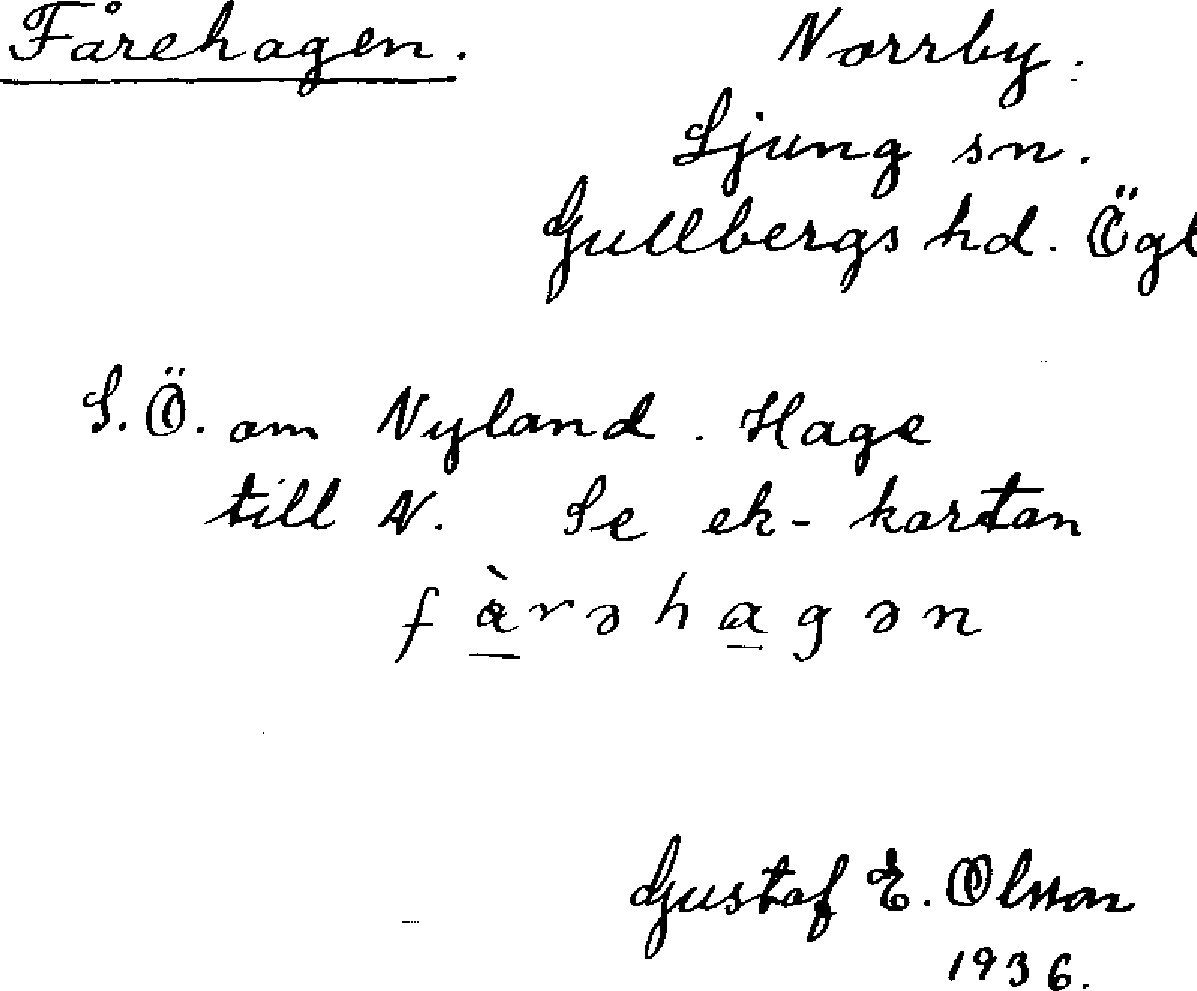 Fårehagen. Norrby.
Ljung sn.
Gullbergs hd. Ögl
S.Ö. om Nyland. Hage
till N. Se ek-kartan
fàrəhagən
Gustaf E. Olsson
1936.